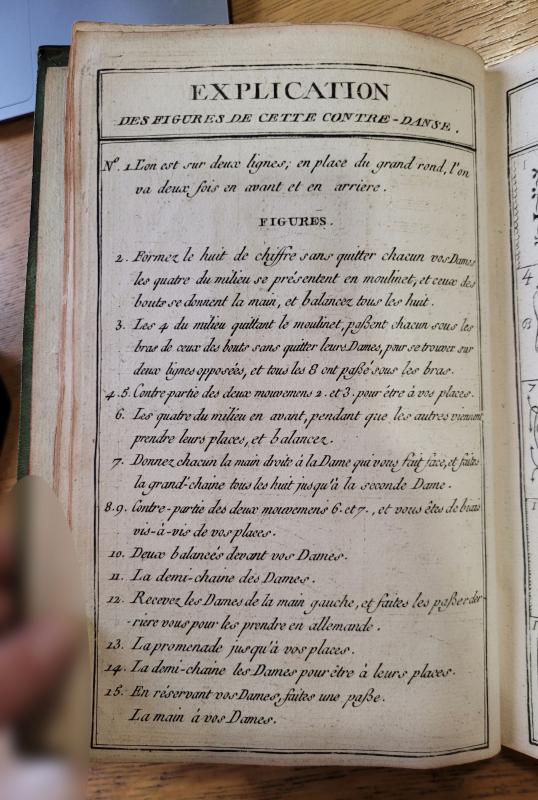 EXPLICATION
DES FIGURES DE CETTE CONTRE-DANSE.
Nº. 1. L'on est sur deux lignes; en place du grand rond, l'on
va deux fois en avant et en arriere.
FIGURES.
2. Formez le huit de chiffre sans quitter chacun vos Dames
les quatre du milieu se présentent en moulinet, et ceux des
bouts se donnent la main, et balancez tous les huit.
3. Les 4 du milieu quittant le moulinet, paßent chacun sous les
bras de ceux des bouts sans quitter leurs Dames, pour se trouver sur
deux lignes opposées, et tous les 8 ont paßé sous les bras.
4.5. Contre-partie des deux mouvemens 2. et 3. pour être à vos places.
6. Les quatre du milieu en avant, pendant que les autres viennent
prendre leurs places, et balancez.
7. Donnez chacun la main droite à la Dame qui vous fait face, et faites
la grand-chaine tous les huit jusqu'à la seconde Dame.
8.9. Contre-partie des deux mouvemens 6. et 7., et vous êtes de biais
vis-à-vis de vos places.
10. Deux balancés devant vos Dames.
11. La demi-chaine des Dames.
12. Recevez les Dames de la main gauche, et faites les paßer der-
-riere vous pour les prendre en allemande.
13. La promenade jusqu'à vos places.
14. La demi-chaine les Dames pour être à leurs places.
15. En réservant vos Dames, faites une paße.
La main à vos Dames.